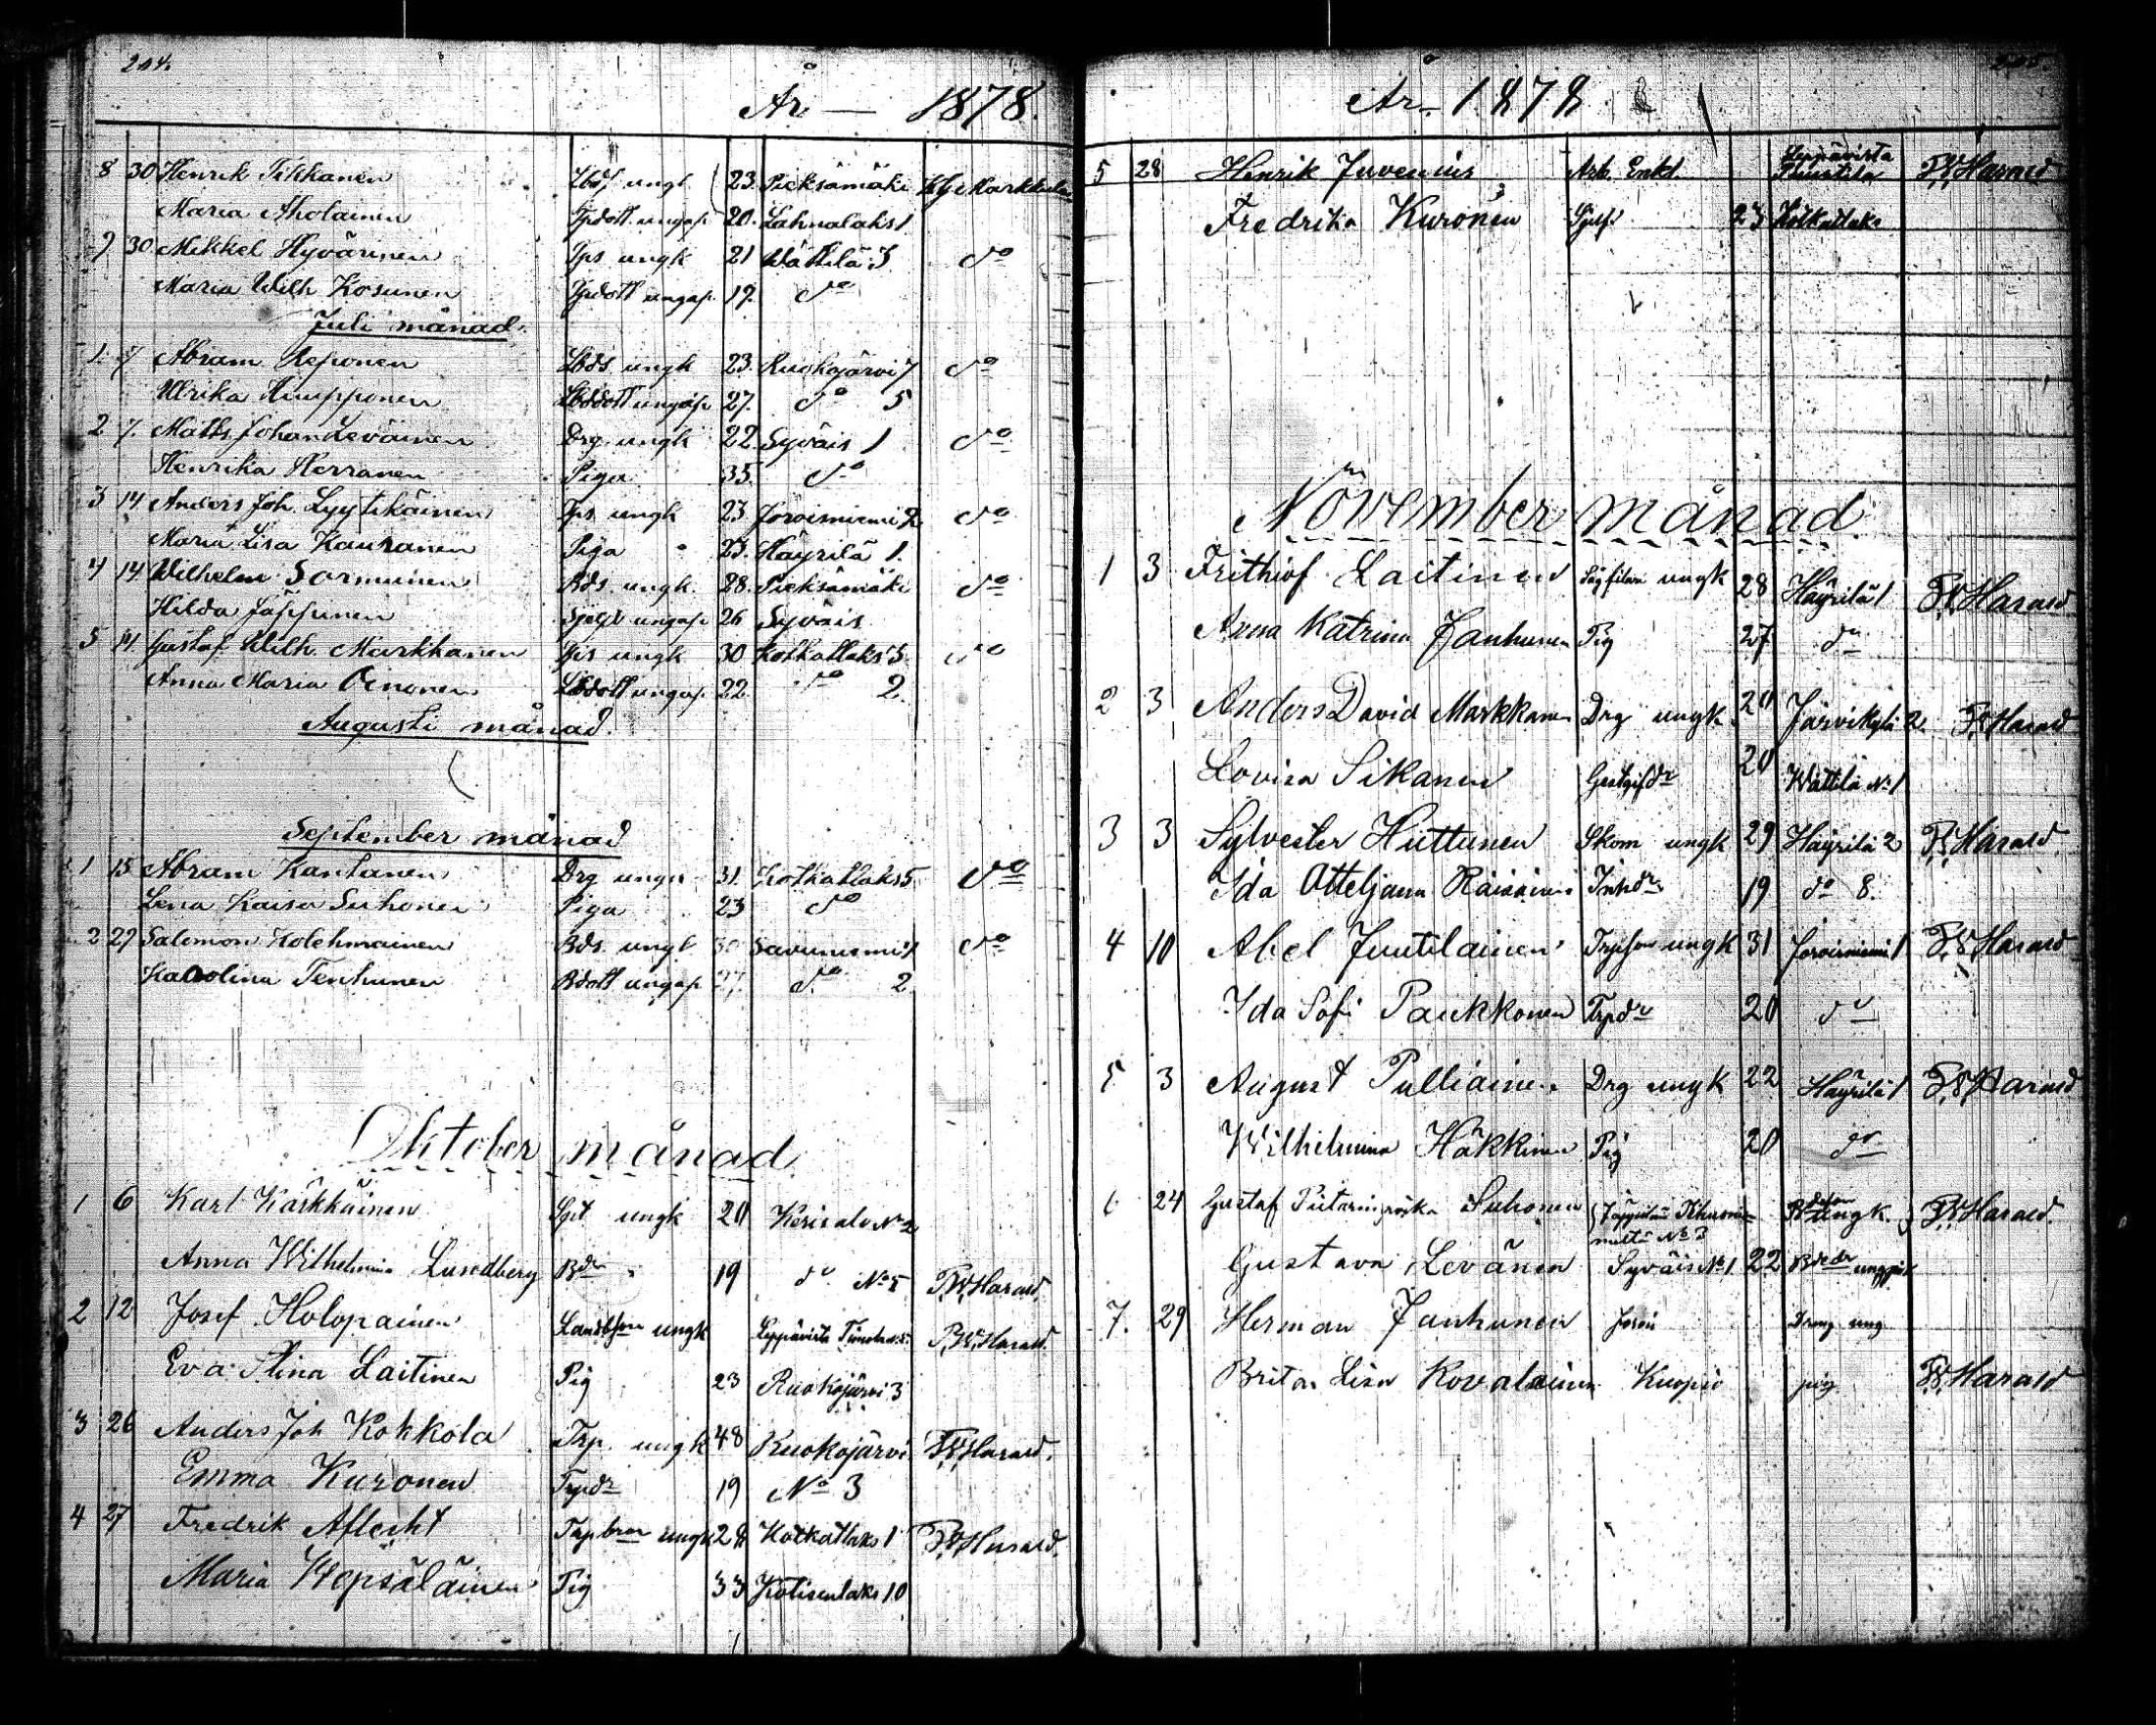 204.
År — 1878.
8 30 Henrik Tikkanen Lbds ungk 23. Pieksämäki
Maria Aholainen Tpdott. ungap. 20. Lahnalaks 1
9 30 Mikkel Hyvärinen Tps ungk 21 Wättilä 3 do
Maria Wilh Kosunen Tpdott ungap. 19. do
Juli månad.
1. 7 Abram Reponen Lbds. ungk 23. Ruokojärvi 7 do
Ulrika Huupponen Lbddott ungap 27. do 5
2 7. Matts Johan Leväinen Drg. ungk 22. Syväis 1 do
Henrika Herranen Piga 35. do
3 14 Anders Joh. Lyytikäinen Tps. ungk 23 Joroisniemi 2 do
Maria Lisa Kauranen Piga 23. Häyrilä 1.
4 14 Wilhelm Sormuinen Bds. ungk. 28. Pieksämäki do
Hilda Jäppinen ungap 26 Syväis
5 14 Gustaf Wilh. Markkanen Tps ungk 30 Kotkatlaks 3 do
Anna Maria Oinonen Lbdott ungap. 22. do 2.
Augusti månad.
September månad
1 15 Abram Kantanen Drg ungk 31. Kotkatlaks 5 do
Lena Kaisa Suhonen Piga 23 do
2 29 Salomon Kolehmainen Bds. ungk 30 Savunemi 4 do
Karolina Tenhunen Bdott ungap 27 do 2.
Oktober månad
1 6 Karl Kärkkäinen ungk 20 Kerisalo No 2
Anna Wilhelmina Lundberg Bdr 19 do No 5 F.W. Harald.
2 12 Josef Holopainen Landbson ungk Leppävirta F.W. Harald.
Eva Stina Laitinen Pig 23 Ruokojärvi 3
3 26 Anders Joh Kokkola Trp. ungk 48 Ruokojärvi F.W. Harald.
Emma Kuronen Trpdr 19 No 3
4 27 Fredrik Aflecht Trpbror ungk 28 Kotkatlaks 1 F.W. Harald.
Maria Hepsäläinen Pig 33 Kotisenlaks 10
205.
År 1878
5 28 Henrik Juvenius Arb. Enkl. Leppävirta F.W. Harald
Fredrika Kuronen 23 Kotkatlaks
November månad
1 3 Frithiof Laitinen ungk 28 Häyrilä 1 F.W. Harald
Anna Katrina Janhunen Pig 27 do
2 3 Anders David Markkanen Drg ungk 20 Järvikylä 2. F.W. Harald
Lovisa Sikanen Gestgifdr 20 Wättilä No 1
3 3 Sylvester Huttunen Skom ungk 29 Häyrilä 2 F.W. Harald
Ida Otteljana Räisäinen Inhdr 19 do 8.
4 10 Abel Juutilainen Trpson ungk 31 Joroisniemi 1 F.W. Harald
Ida Sofi Paukkonen Trpdr 20 do
5 3 August Pulliainen Drg ungk 22 Häyrilä 1 F.W. Harald
Wilhelmina Häkkinen Pig 20 do
6 24 Gustaf Suhonen No 3 ungk. F.W. Harald.
Gustava Levänen Syväis No 1. 22
7. 29 Herman Janhunen Jorois Dreng ung
Brita Lisa Kovalainen Kuopio pig F.W. Harald